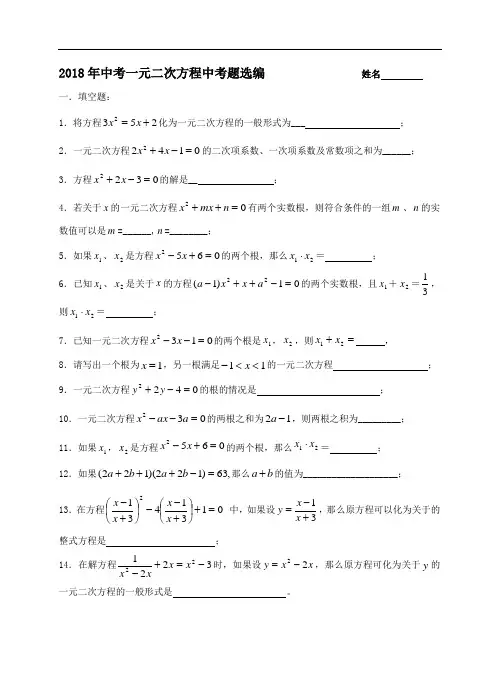 2018年中考一元二次方程中考题选编 姓名
一．填空题：
1．将方程3x²＝5x＋2化为一元二次方程的一般形式为___ ；
2．一元二次方程2x²＋4x－1＝0的二次项系数、一次项系数及常数项之和为______；
3．方程x²＋2x－3＝0的解是__ ；
4．若关于x的一元二次方程x²＋mx＋n＝0有两个实数根，则符合条件的一组m、n的实
数值可以是m=______,n=________；
5．如果x₁、x₂是方程x²－5x＋6＝0的两个根，那么x₁·x₂＝ ；
6．已知x₁、x₂是关于x的方程(a－1)x²＋x＋a²－1＝0的两个实数根，且x₁＋x₂＝1/3，
则x₁·x₂＝ ；
7．已知一元二次方程x²－3x－1＝0的两个根是x₁，x₂，则x₁＋x₂＝ ，
8．请写出一个根为x＝1，另一根满足－1<x<1的一元二次方程 ；
9．一元二次方程y²＋2y－4＝0的根的情况是 ；
10．一元二次方程x²－ax－3a＝0的两根之和为2a－1，则两根之积为_________；
11．如果x₁，x₂是方程x²－5x＋6＝0的两个根，那么x₁·x₂＝ ；
12．如果(2a＋2b＋1)(2a＋2b－1)＝63,那么a＋b的值为____________________；
13．在方程((x－1)/(x＋3))²－4((x－1)/(x＋3))＋1＝0 中，如果设y＝(x－1)/(x＋3)，那么原方程可以化为关于的
整式方程是 ；
14．在解方程1/(x²－2x)＋2x＝x²－3时，如果设y＝x²－2x，那么原方程可化为关于y的
一元二次方程的一般形式是 。